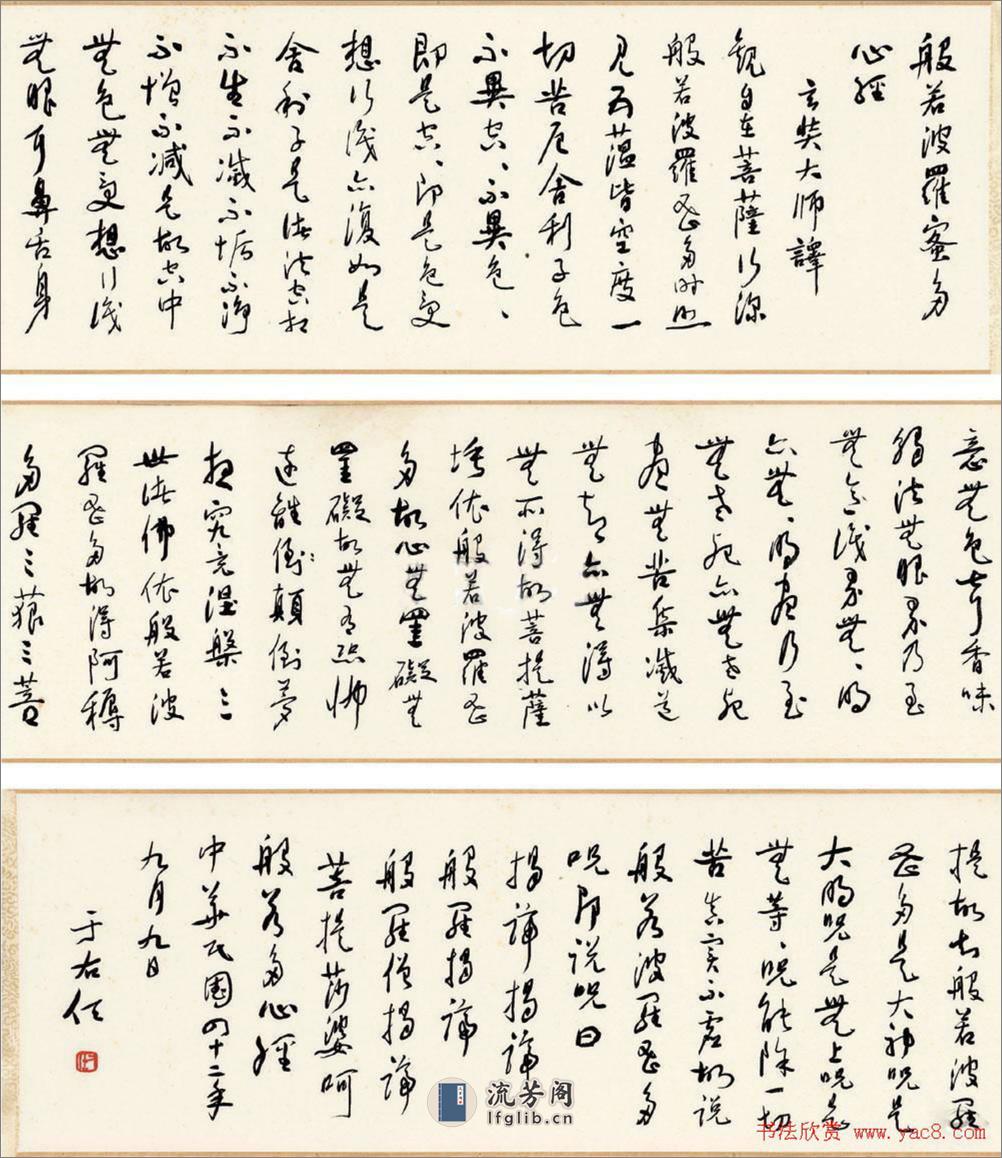 般若波羅蜜多
心經
玄奘大師譯
觀自在菩薩行深
般若波羅蜜多時照
見五蘊皆空度一
切苦厄舍利子色
不異空、不異色、
即是空、即是色受
想行識亦復如是
舍利子是諸法空相
不生不滅不垢不淨
不增不减是故空中
無色無受想行識
無眼耳鼻舌身
意無色聲香味
觸法無眼界乃至
無意識界無、明
亦無、明盡乃至
無老死亦無老死
盡無苦集滅道
無智亦無得以
無所得故菩提薩
埵依般若波羅蜜
多故心無罣礙無
罣礙故無有恐怖
遠離倒顛倒夢
想究竟涅槃三
世諸佛依般若波
羅蜜多故得阿耨
多羅三藐三菩
提故知般若波羅
蜜多是大神咒是
大明咒是無上咒是
無等、咒能除一切
苦真實不虛故說
般若波羅蜜多
咒即說咒曰
揭諦揭諦
般羅揭諦
般羅僧揭諦
菩提莎婆呵
般若多心經
中華民國四十二年
九月九日
于右任
流芳阁
lfglib.cn
书法欣赏 www.yac8.com